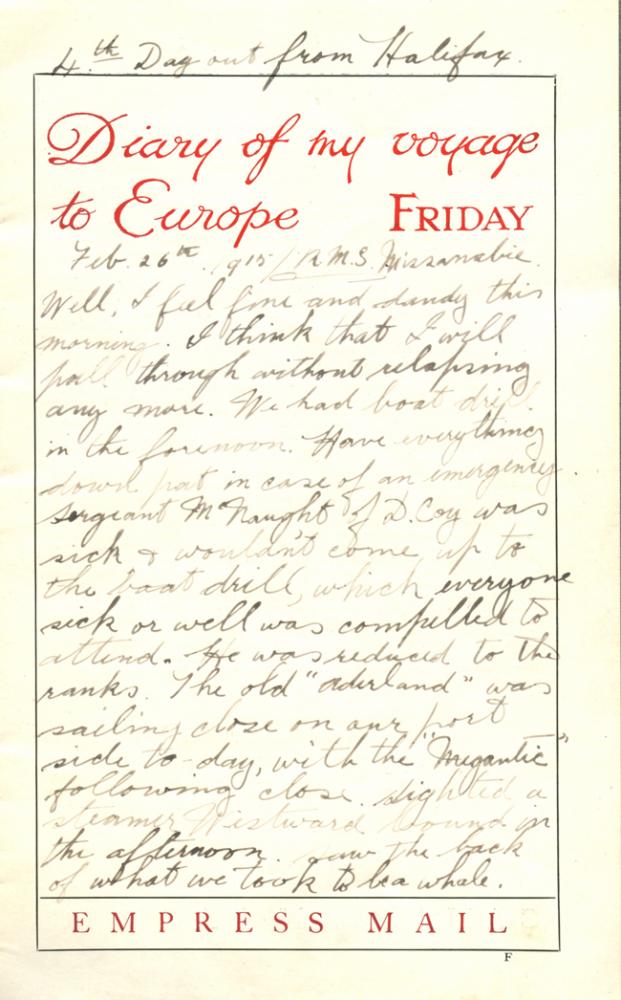 4.th Day out from Halifax.
Diary of my voyage
to Europe FRIDAY
Feb. 26th 1915 / R.M.S. Missanabie.
Well, I feel fine and dandy this
morning. I think that I will
pull through without relapsing
any more. We had boat drill
in the forenoon. Have everything
down pat in case of an emergency
Sergeant McNaught of D. Coy was
sick & wouldn't come up to
the boat drill, which everyone
sick or well was compelled to
attend. He was reduced to the
ranks. The old "aderland" was
sailing close on our port
side to-day, with the "Megantic"
following close. Sighted a
steamer Westward bound in
the afternoon. saw the back
of what we took to be a whale.
EMPRESS MAIL
F